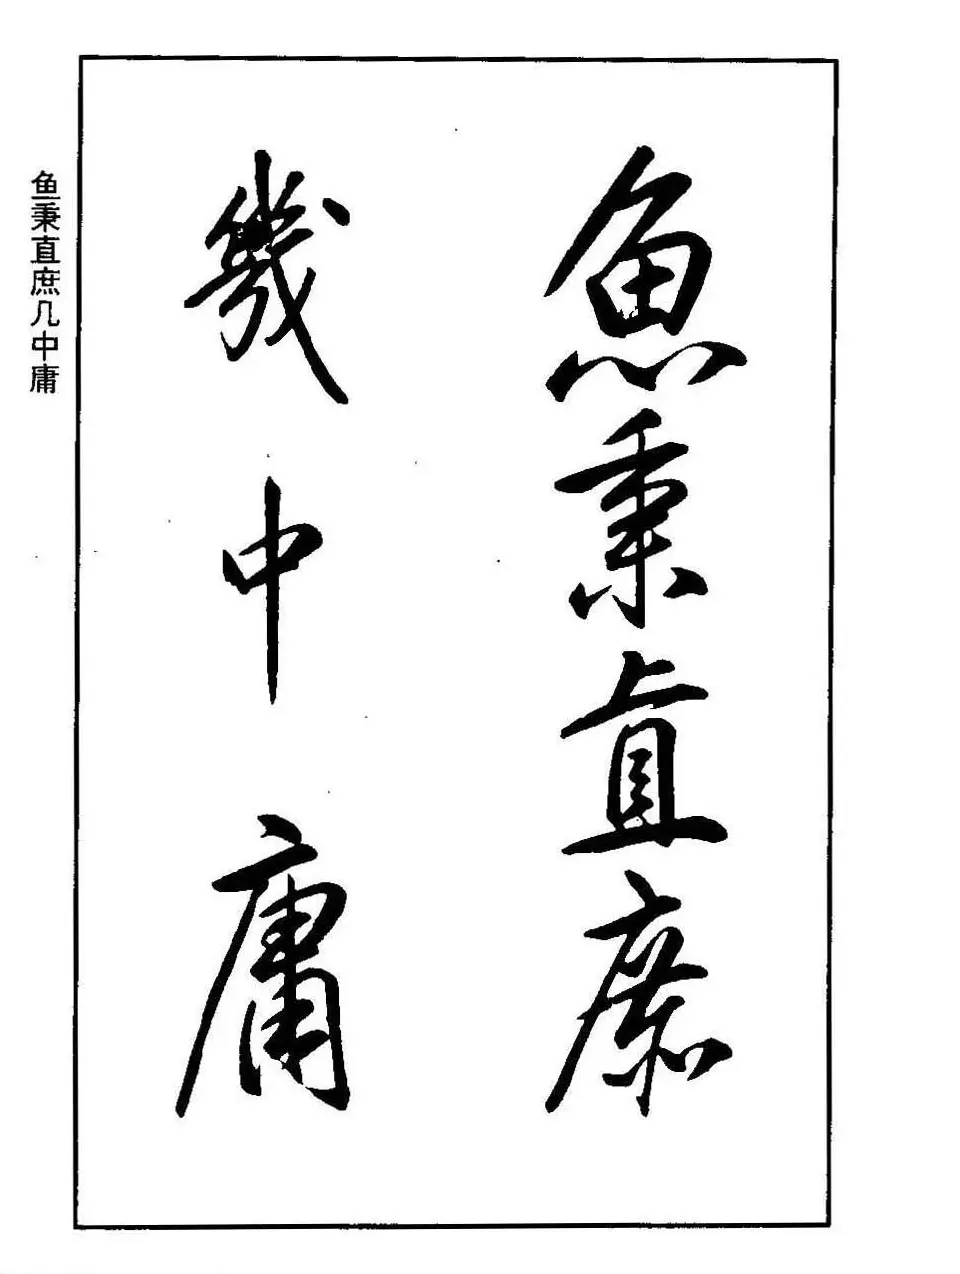 魚秉直庶
幾中庸
鱼秉直庶几中庸